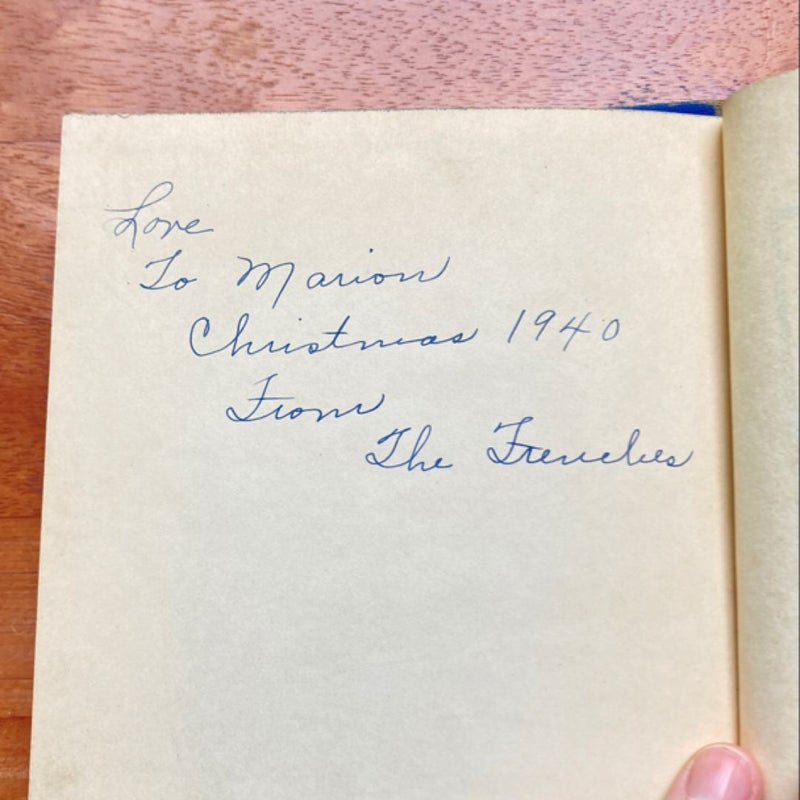 Love
To Marion
Christmas 1940
From
The Frenches